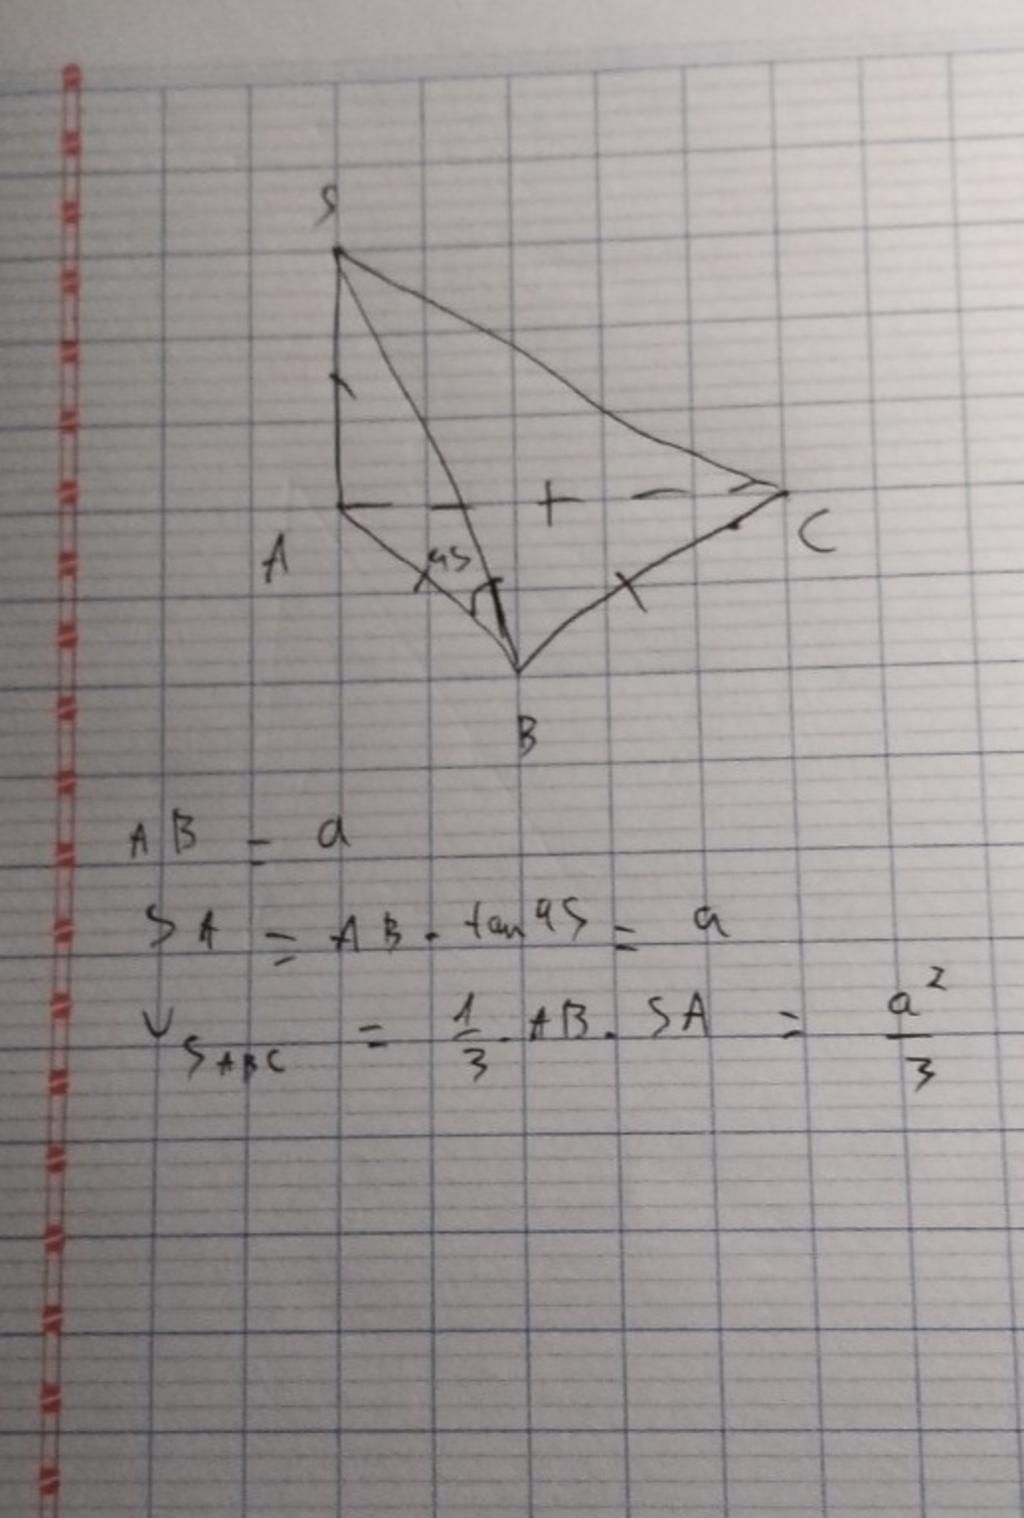 S
A
45
C
B
AB = a
SA = AB . tan 45 = a
V_SABC = 1/3 . AB . SA = a²/3